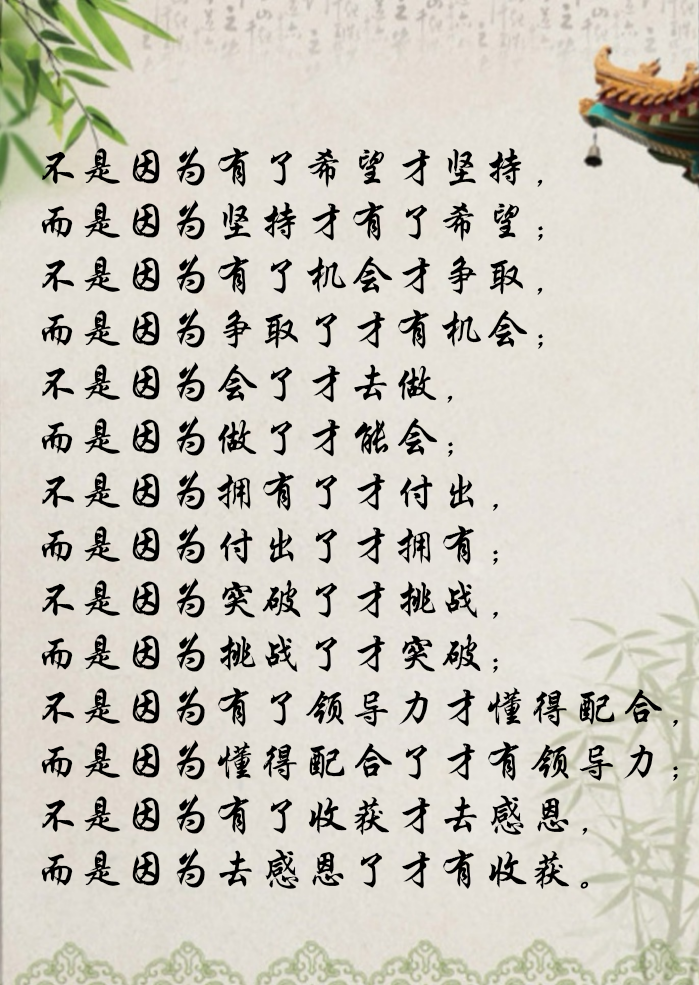 不是因为有了希望才坚持，
而是因为坚持才有了希望；
不是因为有了机会才争取，
而是因为争取了才有机会；
不是因为会了才去做，
而是因为做了才能会；
不是因为拥有了才付出，
而是因为付出了才拥有；
不是因为突破了才挑战，
而是因为挑战了才突破；
不是因为有了领导力才懂得配合，
而是因为懂得配合了才有领导力；
不是因为有了收获才去感恩，
而是因为去感恩了才有收获。